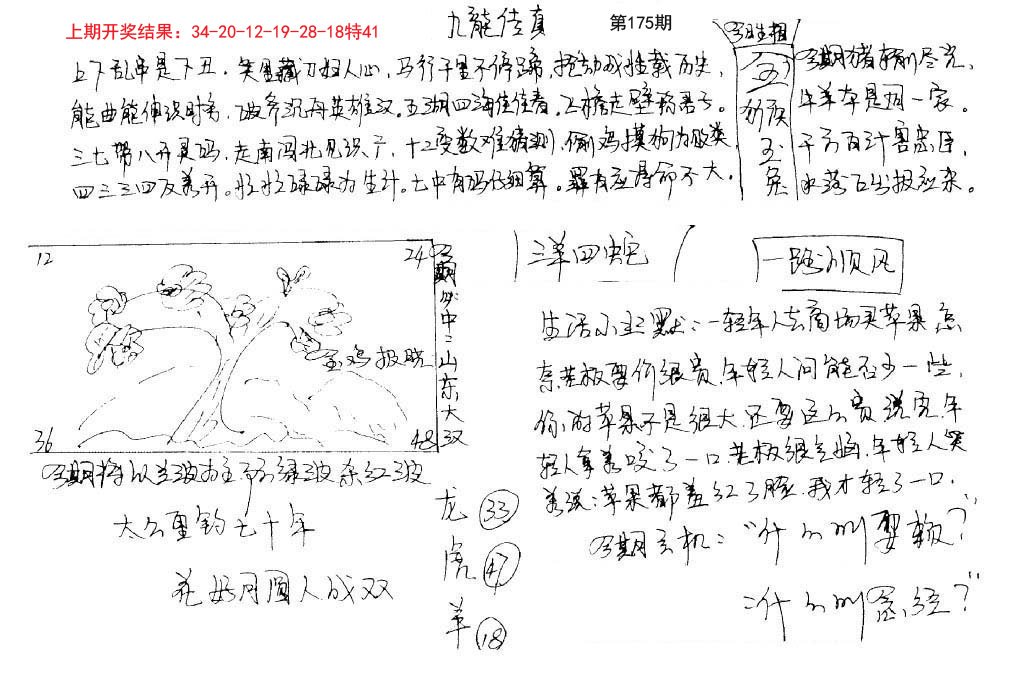 上期开奖结果：34-20-12-19-28-18特41
九龍传真
第175期
今日生相
上下乱串是下丑，笑里藏刀妇人心，马行千里不停蹄，
能曲能伸识时务，
五湖四海佳佳春，飞檐走壁称君子。
三七带八开灵码，走南闯北见识广，十二变数难猜测，偷鸡摸狗为败类，
四三三四反着开。忙忙碌碌为生计。七中有码仔细算。罪有应得命不大。
玉
猴
玉
兔
今期猪
牛羊本是同一家。
千方百计害忠臣，
水落石出报应来。
三羊四蛇
一路顺风
12
24
36
48
金鸡报晓
今期必中：山东大汉
今期特以
绿波
红波
太公
钓七十年
花好月圆人成双
龙 33
虎 47
羊 18
生活小幽默：一轻年人去商场买苹果，怎
奈老板要价很贵，年轻人问能否少一些，
你的苹果不是很大，还要这么贵，说完年
轻人拿着咬了一口，老板很气恼，年轻人笑
着说：苹果都羞红了脸，我才轻了一口.
今期玄机："什么叫耍赖？"
"什么叫
？"